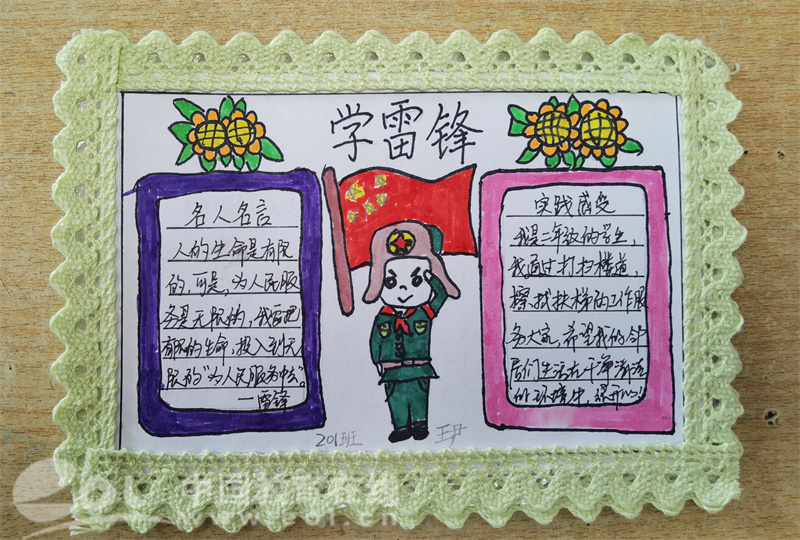 学雷锋
名人名言
人的生命是有限
的,可是,为人民服
务是无限的,我要把
有限的生命,投入到无
限的"为人民服务中去"。
—雷锋
实践感受
我是二年级的学生,
我通过打扫楼道,
擦拭扶梯的工作服
务大家,希望我的邻
居们生活在干净清洁
的环境中,很开心!
201班
中国教育在线
www.eol.cn